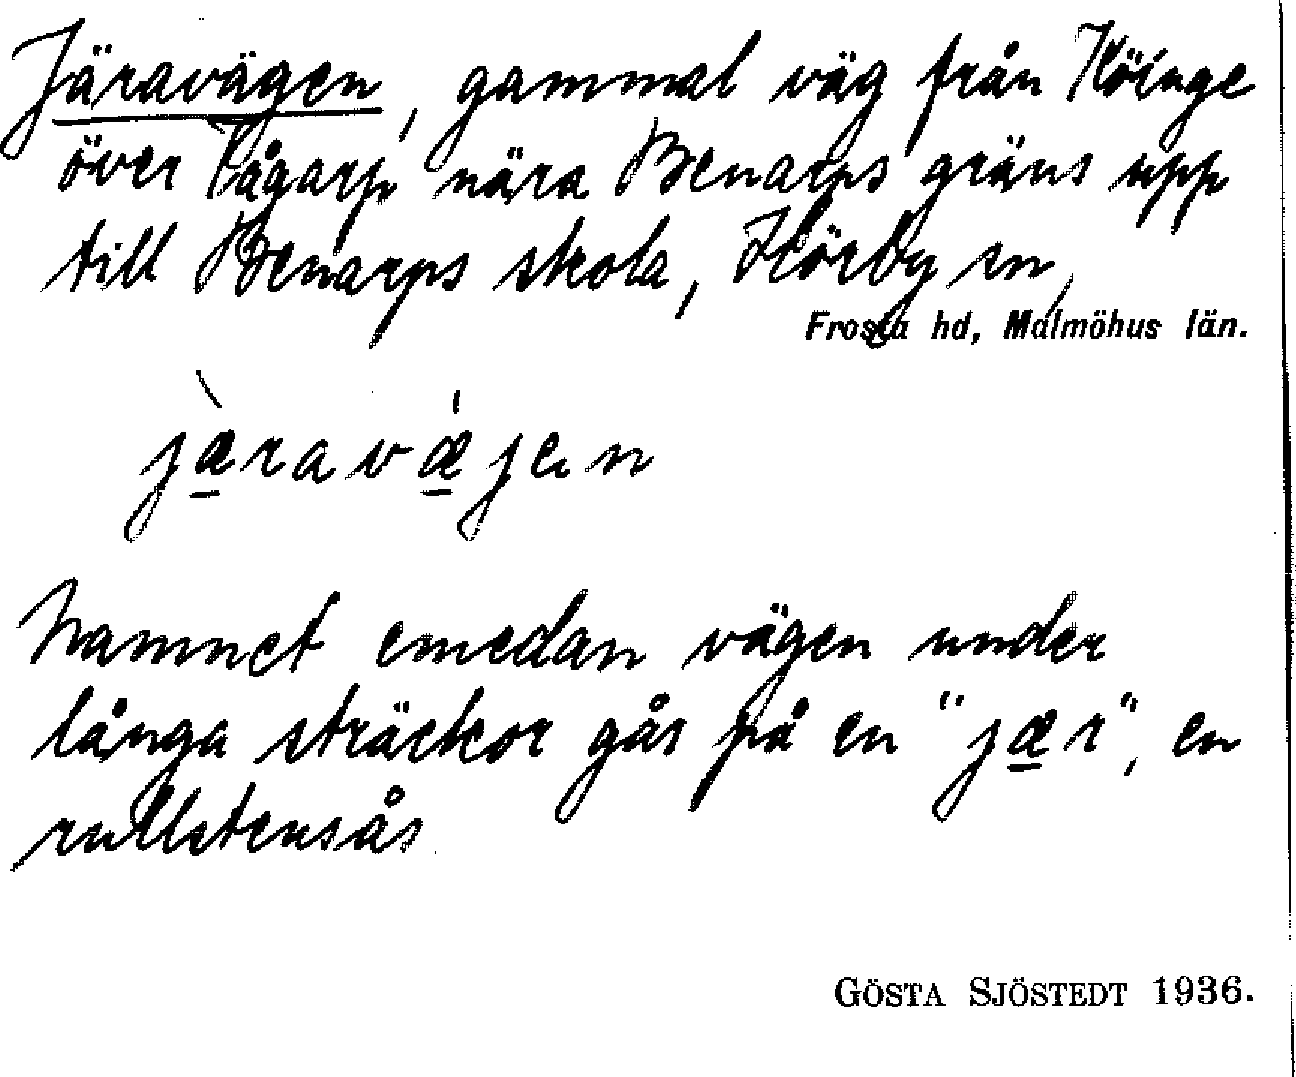 Järavägen, gammal väg från Köinge
över Fågarp nära Benarps gräns upp
till Benarps skola, Hörby sn,
Frosta hd, Malmöhus län.
jæ̱̀ravǽ̱jen
Namnet emedan vägen under
långa sträckor går på en "jæ̱r", en
rullstensås
GÖSTA SJÖSTEDT 1936.